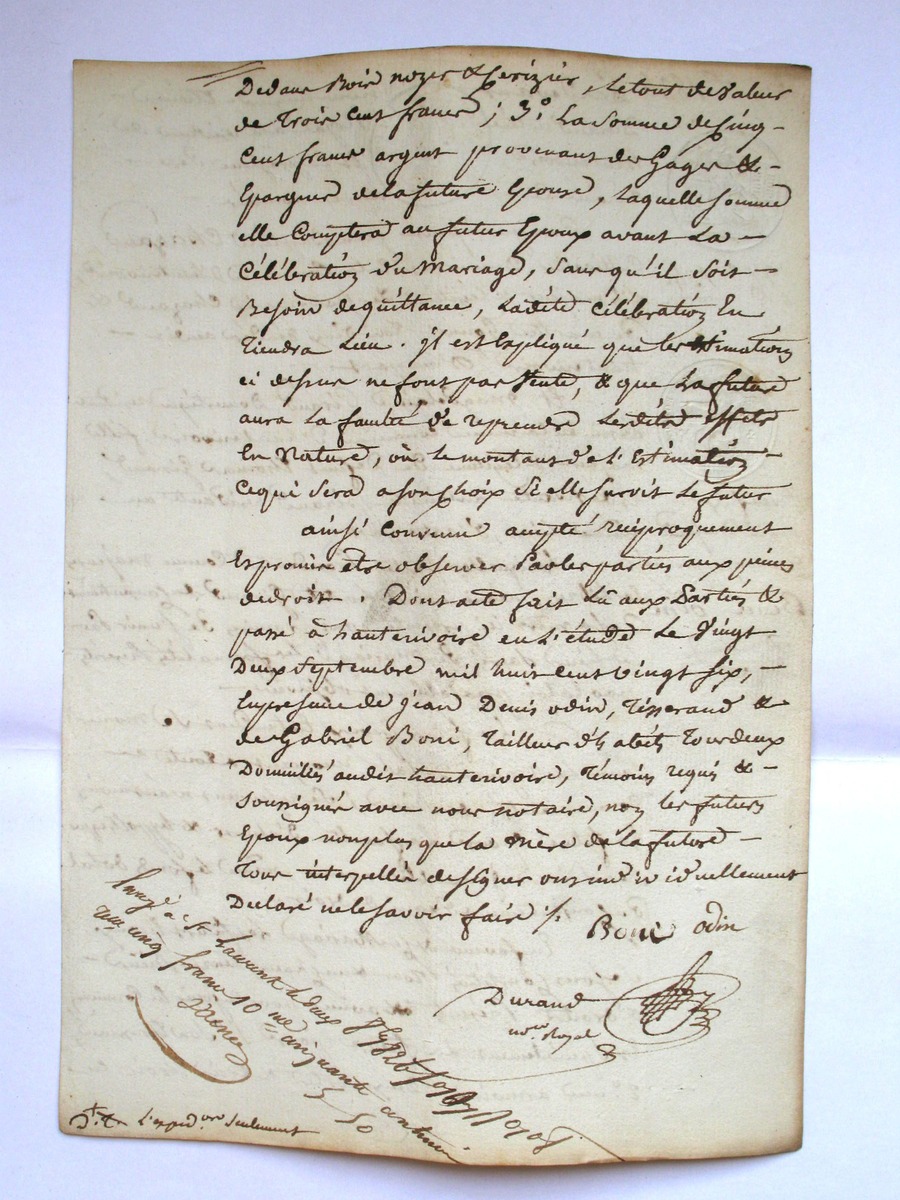 Dedans Bois noyer & Cerizier, le tout de valeur
de Trois Cent francs ; 3.º La Somme de Cinq
Cent francs argent provenant des Gages &
Epargnes de la future Epouse, laquelle somme
elle Comptera au futur Epoux avant La
Célébration du Mariage, Sans qu'il soit
Besoin de quittance, Ladite Célébration En
Tiendra Lieu. jl est Expliqué que les Estimations
ci dessus ne font pas Vente, & que La future
aura La faculté de reprendre Lesdits Effets
En Nature, où Le montant de L'Estimation
Ce qui Sera a son Choix Si elle survit Le futur
ainsi Convenu accepté réciproquement
Et promis etre observer Par les parties aux peines
de droit. Dont acte fait Lu aux Parties &
passé à hauterivoire en L'étude Le Vingt
Deux Septembre mil huit Cent vingt six,
En presence de jean Denis odin, Tisserand &
de Gabriel Boni, Tailleur d'habits Tous deux
Domiciliés audit hauterivoire, Témoins requis &
soussignés avec nous notaire, non les futurs
Epoux non plus que la Mère de la future
Tous interpellés de signer ont individuellement
Declaré ne le savoir faire ./.
Boni odin
Durand
no.re Royal
à St Laurent Le deux 8bre 1826 fo
cinq francs 10 me cinquante centimes
5 50
L'expéd.on seulement